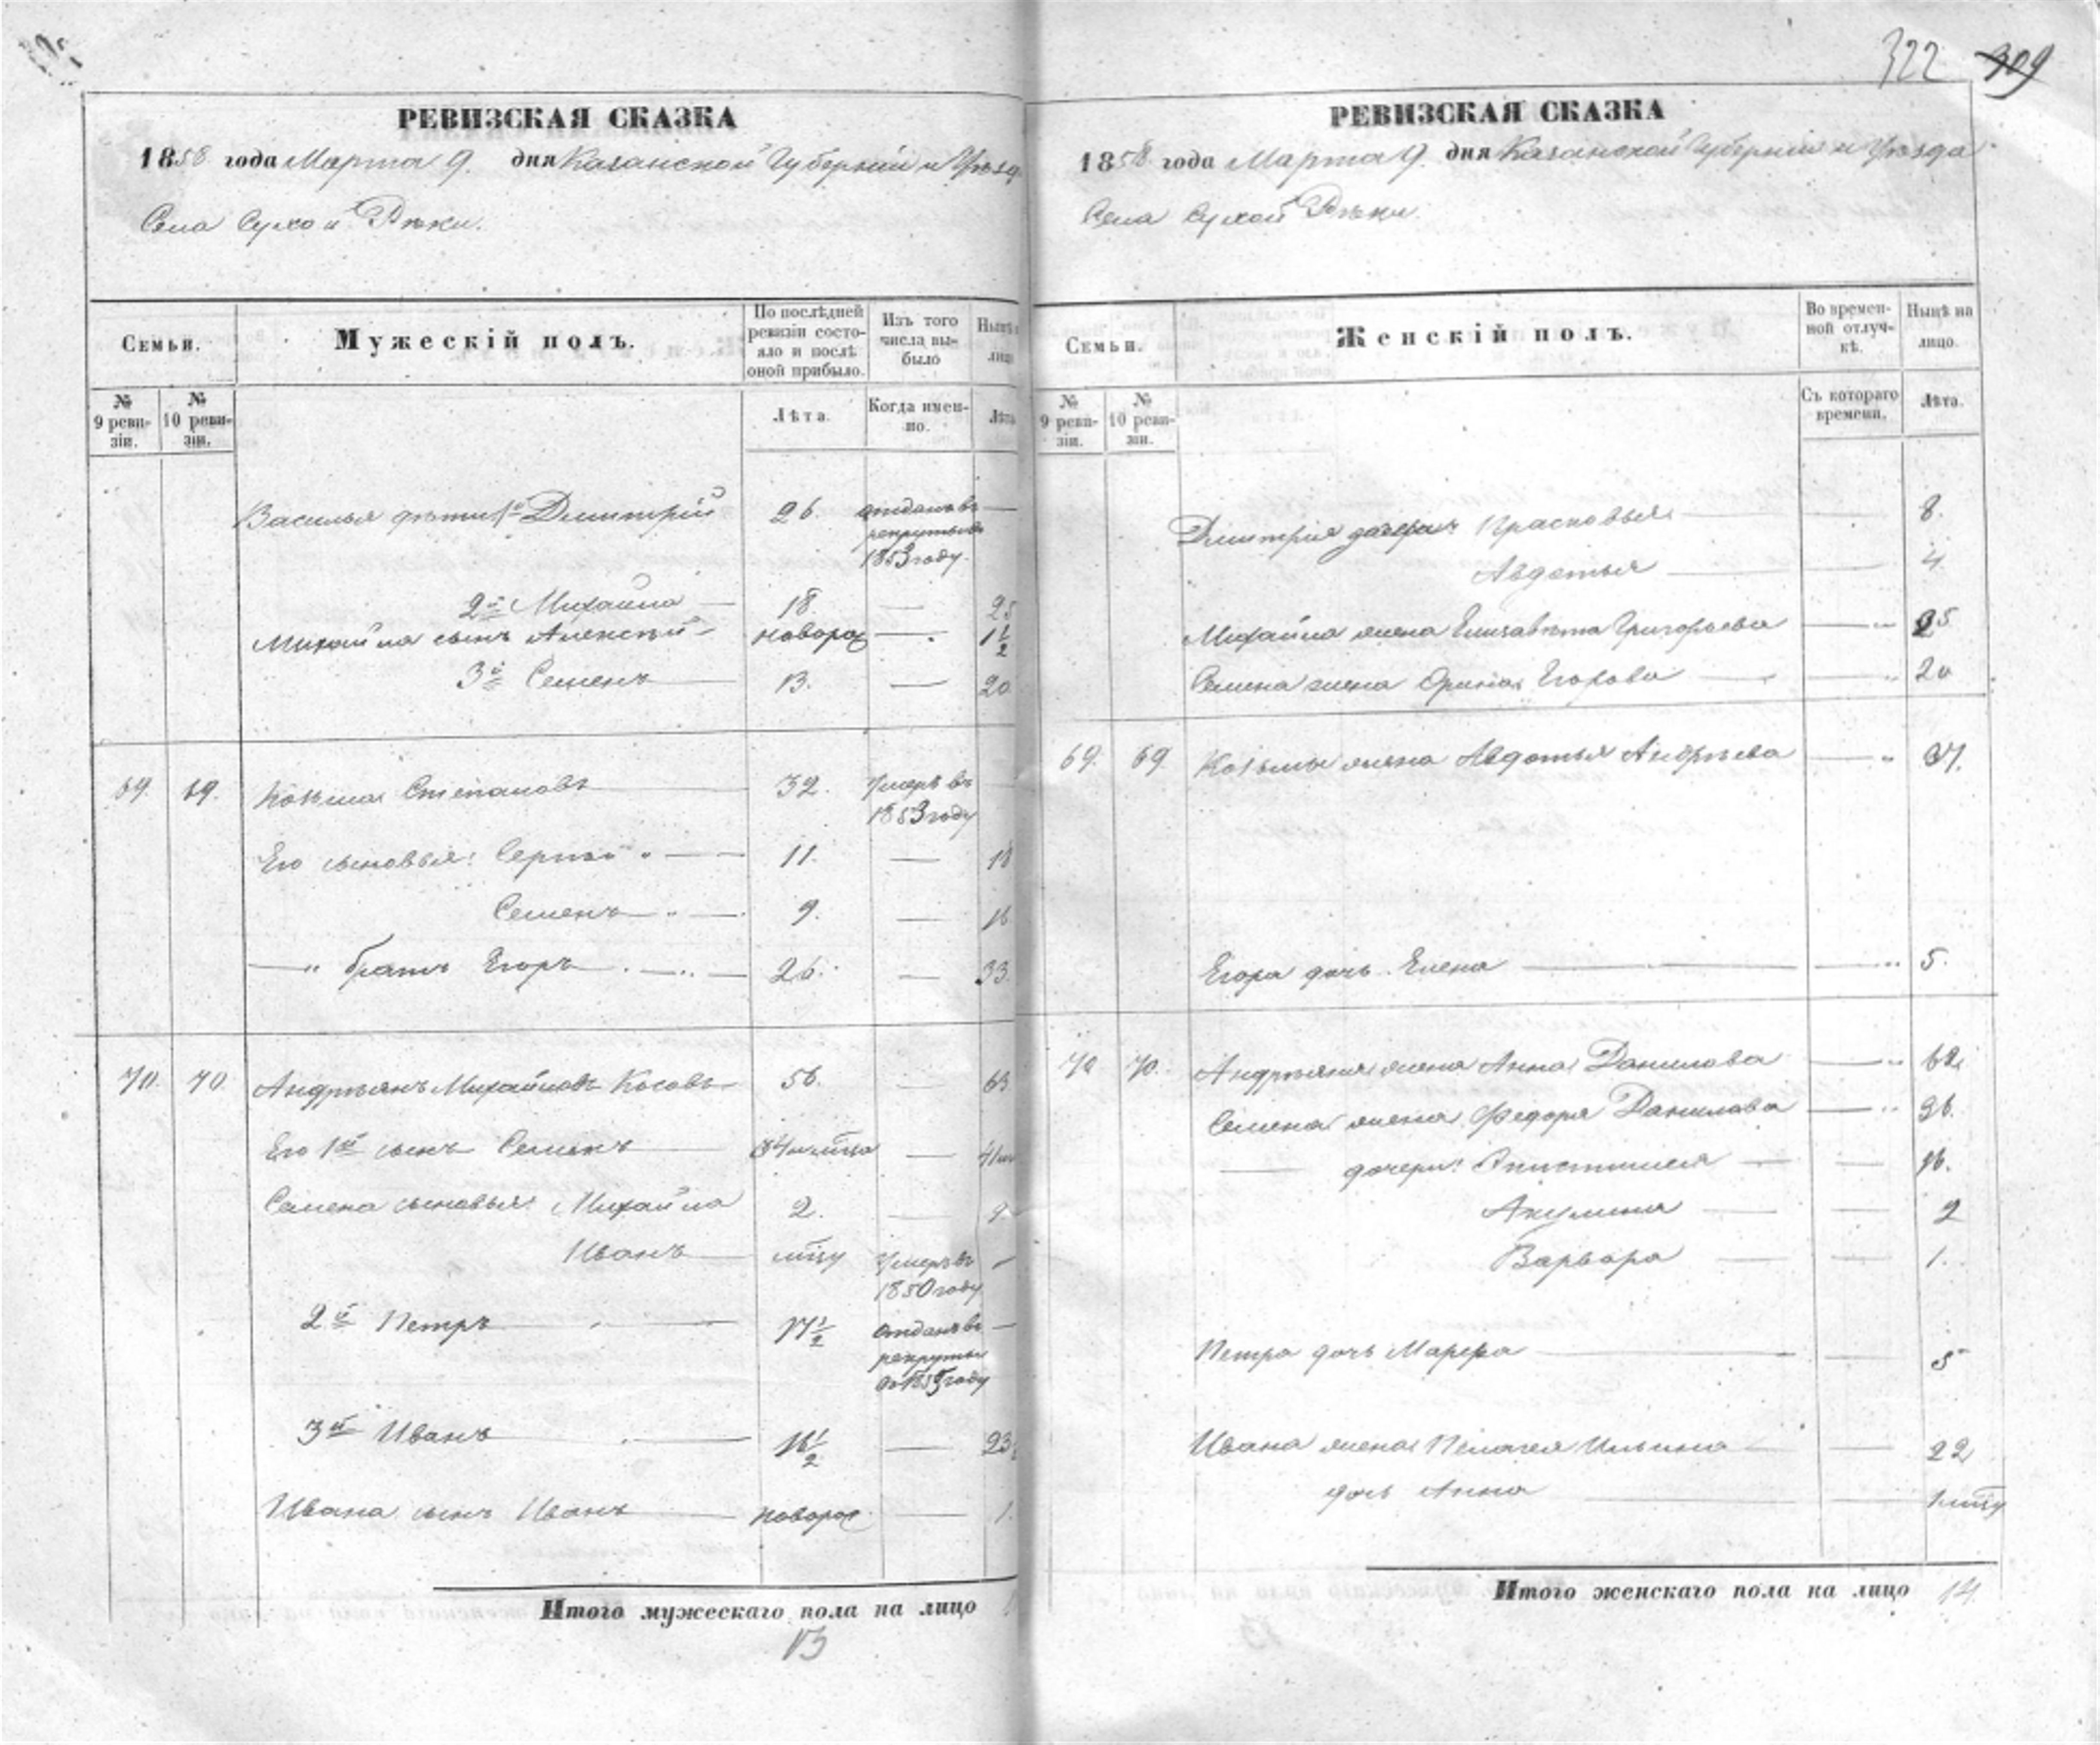 РЕВИЗСКАЯ СКАЗКА
1858 года Марта 9. дня Казанской Губерніи и Уѣзда
Села Сухой Рѣки.
Семьи.
Мужескій полъ.
По послѣдней ревизіи состояло и послѣ оной прибыло.
Изъ того числа выбыло
Нынѣ
лицо
№ 9 ревизіи.
№ 10 ревизіи.
Лѣта.
Когда именно.
Лѣта
Василья дѣти 1й Дмитрій 26. отданъ въ рекруты въ 1853 году. —
2й Михайла — 18. — 25
Михайла сынъ Алексѣй — новорож — 1 1/2
3й Семенъ — 13. — 20
69. 69. Козьма Степановъ 32. Умеръ въ 1853 году
Его сыновья: Сергѣй — 11. — 18
Семенъ — 9. — 16
— " братъ Егоръ — 26. — 33.
70. 70. Андрѣянъ Михайловъ Косовъ 56. — 63
Его 1й сынъ Семенъ — 41
Семена сыновья: Михайла 2. — 9
Иванъ — мцу Умеръ въ 1850 году —
2й Петръ — 17 1/2 Отданъ въ рекруты —
3й Иванъ — 16 1/2 — 23
Ивана сынъ Иванъ — новорож — 1.
Итого мужескаго пола на лицо
13
322 309
РЕВИЗСКАЯ СКАЗКА
1858 года Марта 9. дня Казанской Губерніи и Уѣзда
Села Сухой Рѣки.
Семьи.
Женскій полъ.
Во временной отлучкѣ.
Нынѣ на лицо.
№ 9 ревизіи.
№ 10 ревизіи.
Съ котораго времени.
Лѣта.
Дмитрія дочери Прасковья — 8.
Авдотья — 4
Михайла жена Елизавѣта Григорьева — 25
Семена жена Орина Егорова — 20
69. 69. Козьмы жена Авдотья Андрѣева — 37.
Егора дочь Елена — 5.
70 70. Андрѣяна жена Анна Данилова — 62
Семена жена Федора Данилова — 36.
— дочери: — 16.
Акулина — 9
Варвара — 1.
Петра дочь Марфа — 5
Ивана жена Пелагея Ильина — 22
дочь Анна — 1 мцу
Итого женскаго пола на лицо 14